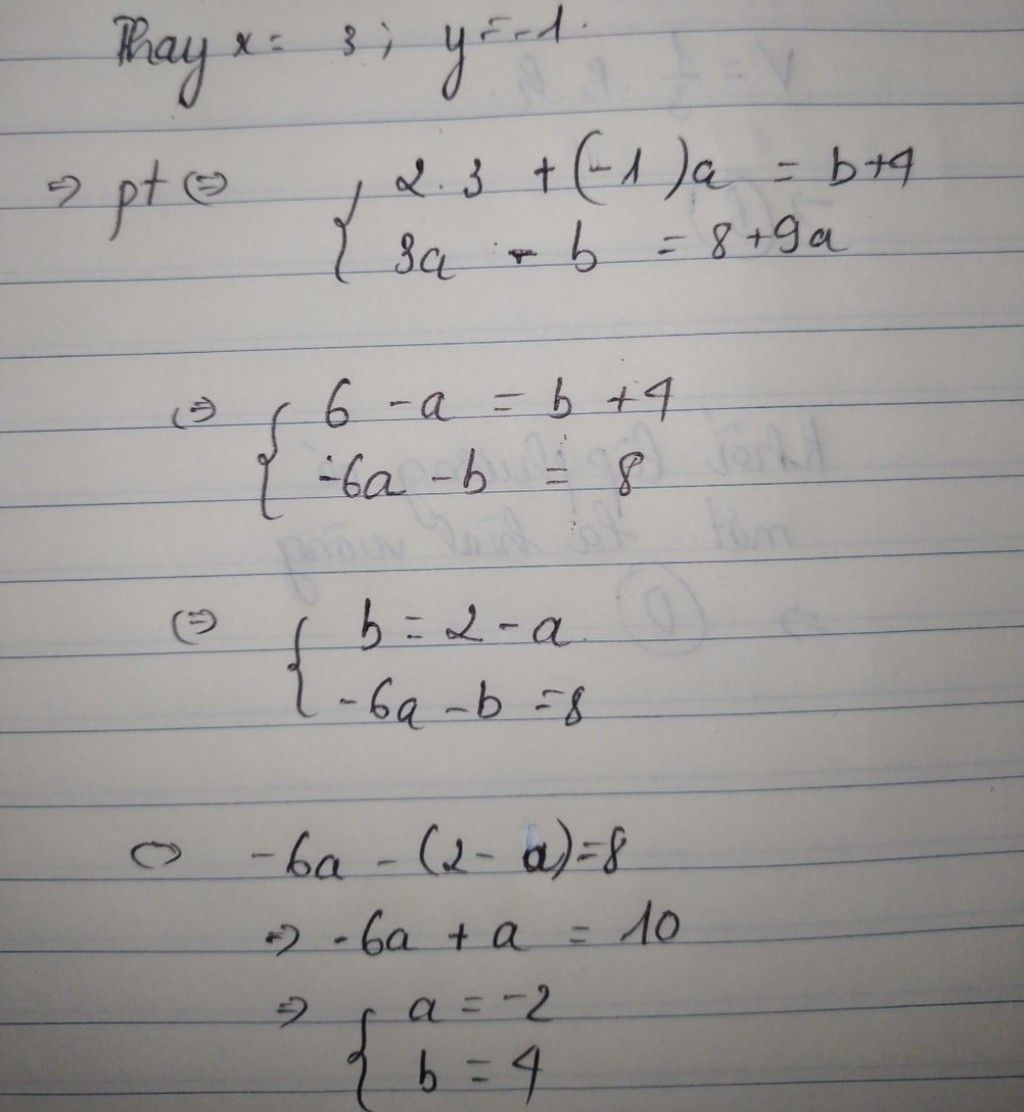 Thay x = 3; y = -1.
⇒ pt ⇔ { 2.3 + (-1)a = b+4
3a - b = 8+9a
⇔ { 6 - a = b + 4
-6a - b = 8
⇔ { b = 2 - a
-6a - b = 8
⇔ -6a - (2 - a) = 8
⇒ -6a + a = 10
⇒ { a = -2
b = 4